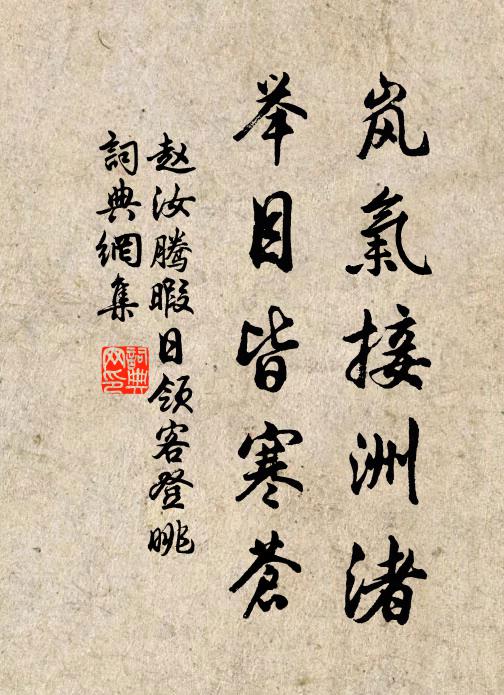 岚氣接洲渚
举目皆寒蒼
赵汝腾暇日领客登眺
詞典網集
詞典
网印